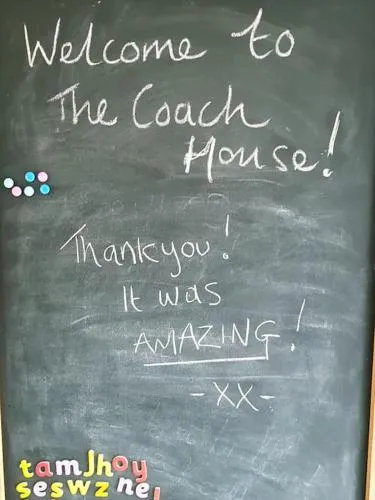 Welcome to
The Coach
House!
Thankyou!
It was
AMAZING!
-XX-
tamJhoy
seswz ne!